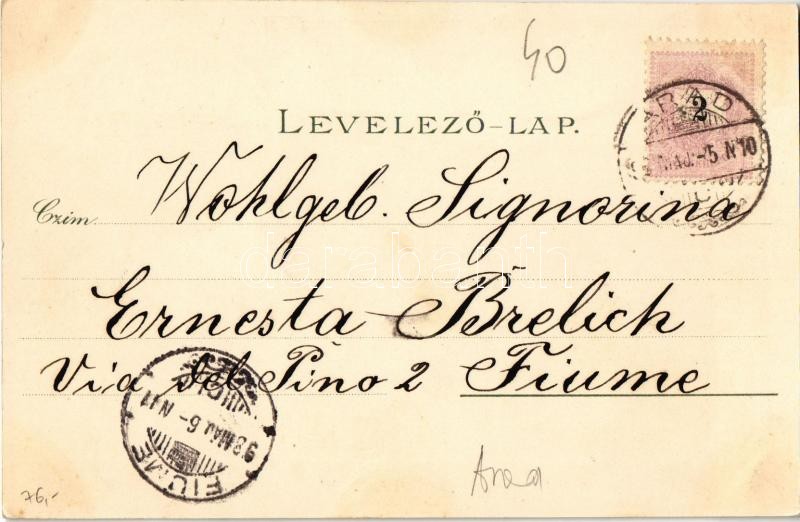 40
LEVELEZŐ-LAP.
ARAD
2
MÁJ.-5 N10
Czim.
Wohlgeb. Signorina
darabanth
Ernesta Brelich
Via del Pino 2 Fiume
98 MAJ. 6-N 11
FIUME
76,-